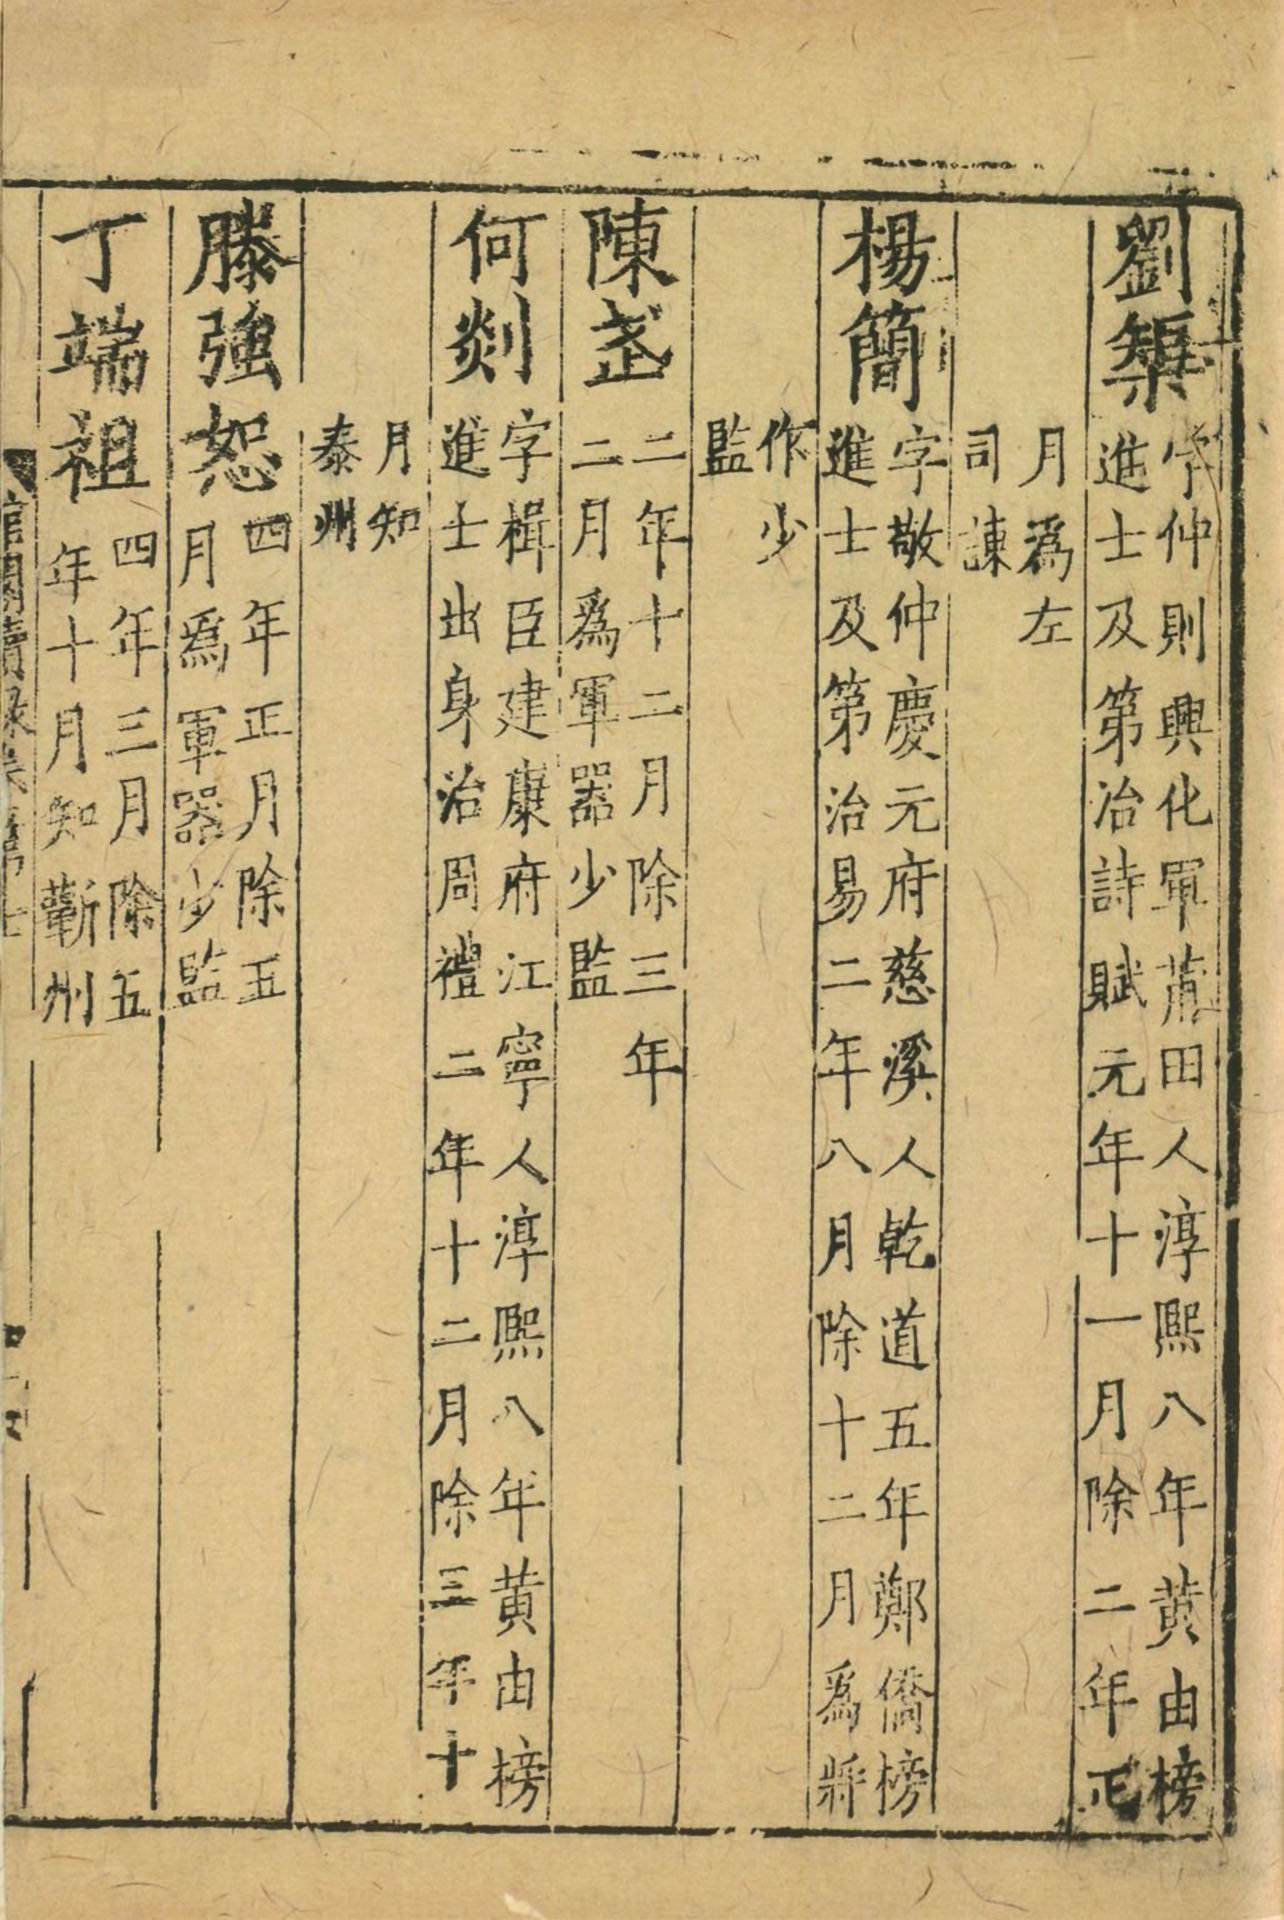 劉榘字仲則興化軍莆田人淳熙八年黄由榜
進士及第治詩賦元年十一月除二年正
月爲左
司諫
楊簡字敬仲慶元府慈溪人乾道五年鄭僑榜
進士及第治易二年八月除十二月爲將
作少
監
陳茋二年十二月除三年
二月爲軍器少監
何剡字楫臣建康府江寧人淳熙八年黄由榜
進士出身治周禮二年十二月除三年十
月知
泰州
滕強恕四年正月除五
月爲軍器少監
丁端祖四年三月除五
年十月知蘄州
館閣續録卷第七